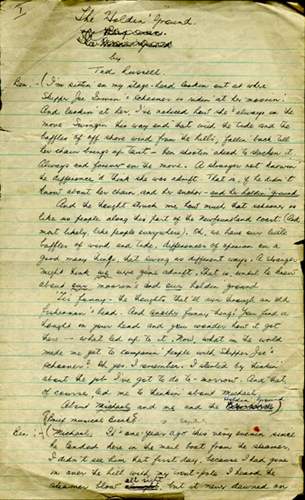 I
The 'Holdin' Ground'
by
Ted Russell
Ben:- (I'm sittin on my stage-head lookin out at where
Skipper Joe Irwin's schooner is ridin at her moorin's.
And lookin at her, I've noticed how she's always on the
move. Swingin this way and that with the tide and the
baffles of off shore wind from the hills, fallin back till
her chain brings up taut & then shootin ahead to slacken it.
Always and forever on the move. A stranger not knowin
the difference'd think she was adrift. That is, if he didn't
know about her chain, and her anchor - and the holdin ground.
And the thought struck me how much that schooner is
like us people along this part of the Newfoundland coast (And
most likely, like people everywhere). Oh, we have our little
baffles of wind and tide, differences of opinion on a
good many things, that swing us different ways. A stranger
might think we were gone adrift, that is, until he knew
about our moorin's and our holdin ground
'Tis funny - the thoughts that'll run through an old
fisherman's head. And another funny thing: You find a
thought in your head and you wonder how it got
here - what led up to it. Now, what in the world
made me get to comparin' people with Skipper Joe's
schooner? Oh yes. I remember. I started by thinkin
about the job I've got to do to-morrow. And that,
of course, led me to thinkin about Michael.
About Michael and me and the Holdin Ground
(Brief musical Break)
Ben:- (Michael. 'Tis one year ago this very evenin since
he landed here in the mail boat from the steamer.
I didn't see him that first day, because I had gone
in over the hill with my
I heard the
steamer blow all right but it never dawned on